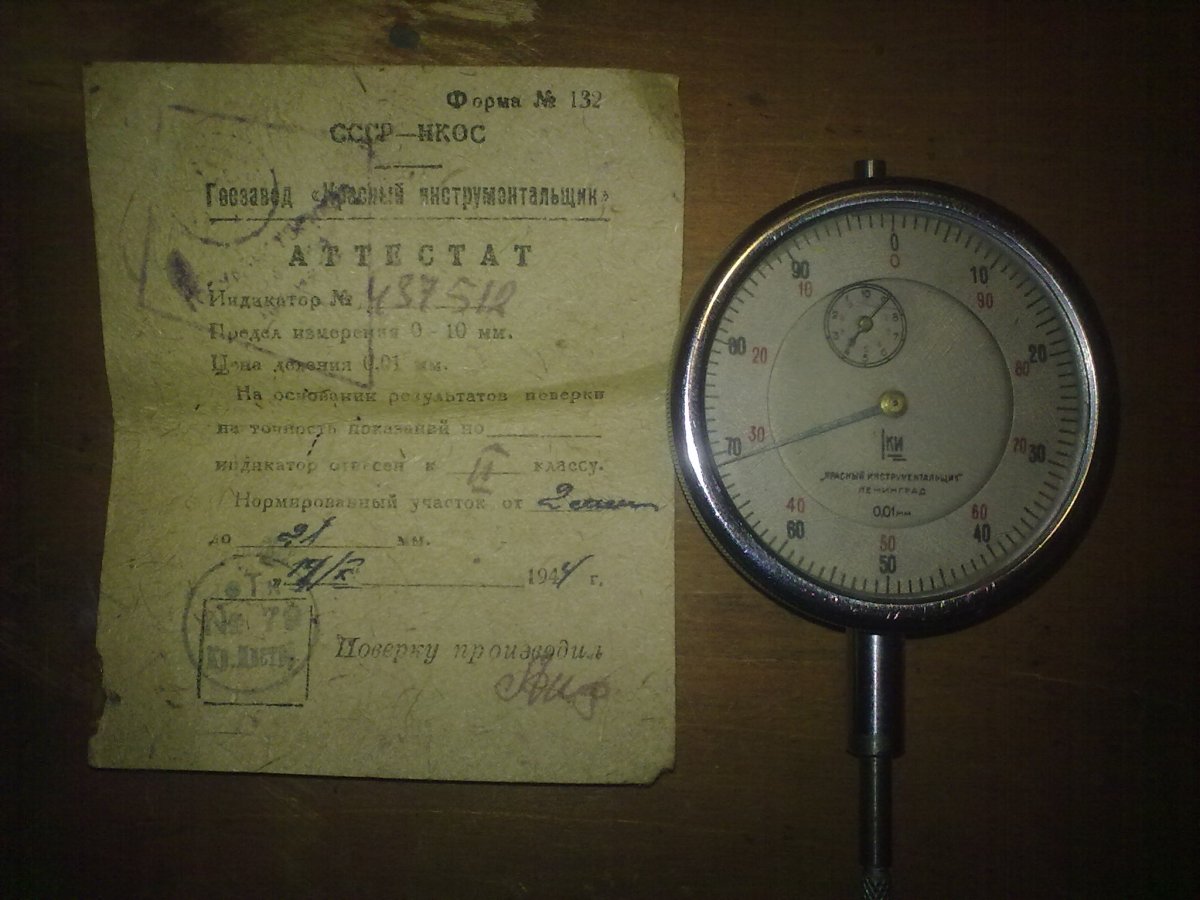 Форма № 132
СССР—НКОС
Госзавод «Красный инструментальщик»
АТТЕСТАТ
Индикатор № 437512
Предел измерения 0-10 мм.
Цена деления 0.01 мм.
На основании результатов поверки
на точность показаний по
индикатор отнесен к II классу.
Нормированный участок от
до мм.
1944 г.
ОТК
№ 79
Кр. Инстр.
Поверку производил
0
0
90
10
10
90
80
20
20
80
70
30
30
70
60
40
40
60
50
50
10
КИ
„КРАСНЫЙ ИНСТРУМЕНТАЛЬЩИК"
ЛЕНИНГРАД
0,01мм